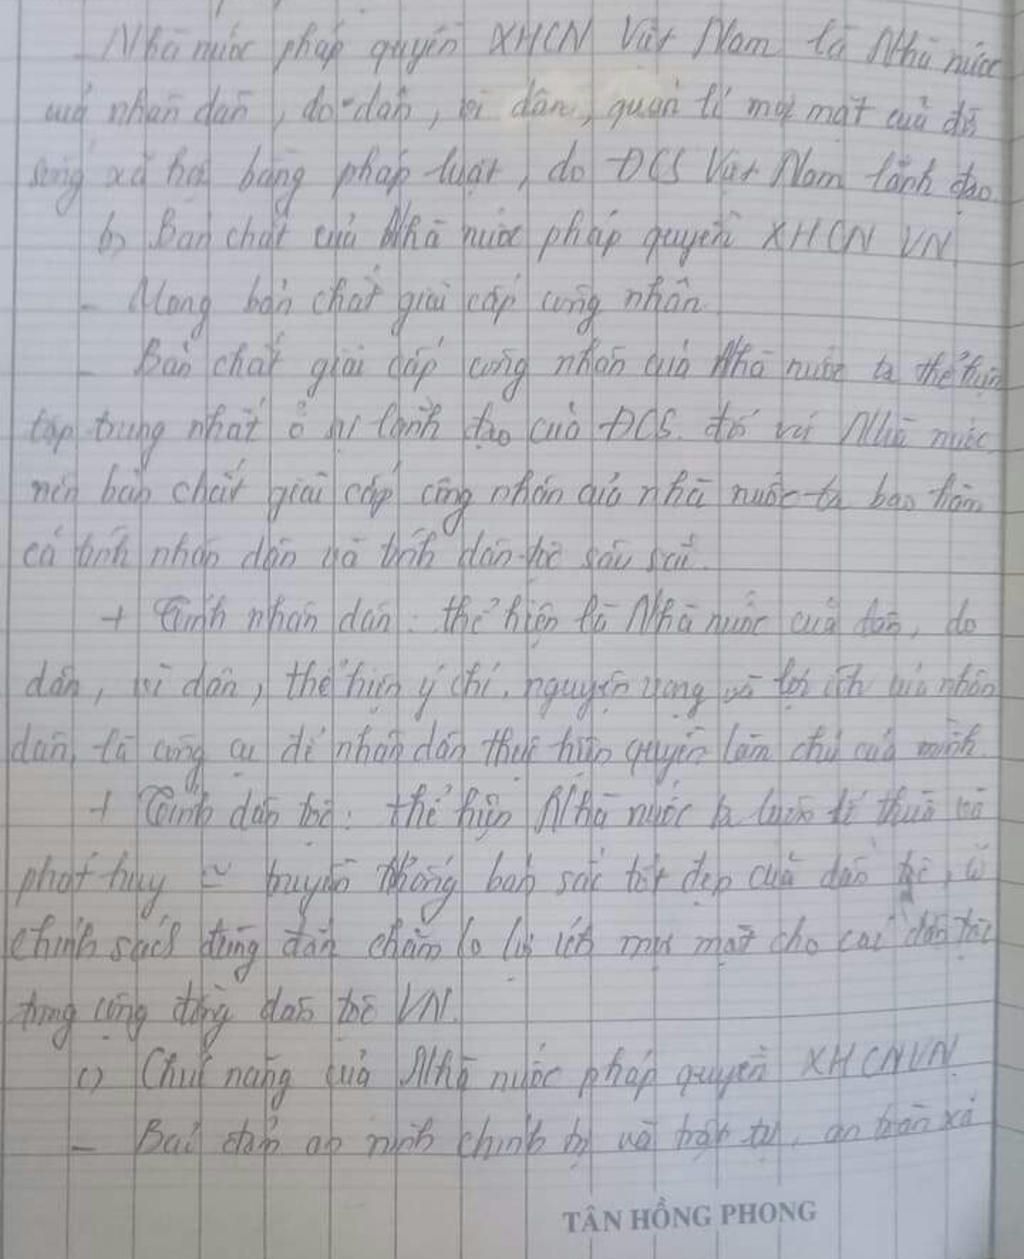 - Nhà nước pháp quyền XHCN Việt Nam là Nhà nước
của nhân dân, do dân, vì dân, quản lí mọi mặt của đời
sống xã hội bằng pháp luật, do ĐCS Việt Nam lãnh đạo
b) Bản chất của Nhà nước pháp quyền XHCN VN
- Mang bản chất giai cấp công nhân
- Bản chất giai cấp công nhân của Nhà nước ta thể hiện
tập trung nhất ở sự lãnh đạo của ĐCS đối với Nhà nước
nên bản chất giai cấp công nhân của nhà nước ta bao hàm
cả tính nhân dân và tính dân tộc sâu sắc.
+ Tính nhân dân: thể hiện là Nhà nước của dân, do
dân, vì dân, thể hiện ý chí, nguyện vọng và lợi ích của nhân
dân, là công cụ để nhân dân thực hiện quyền làm chủ của mình
+ Tính dân tộc: thể hiện Nhà nước ta luôn kế thừa và
phát huy ~ truyền thống bản sắc tốt đẹp của dân tộc, có
chính sách đúng đắn chăm lo lợi ích mọi mặt cho các dân tộc
trong cộng đồng dân tộc VN.
c) Chức năng của Nhà nước pháp quyền XHCNVN
- Bảo đảm an ninh chính trị và trật tự, an toàn xã
TÂN HỒNG PHONG